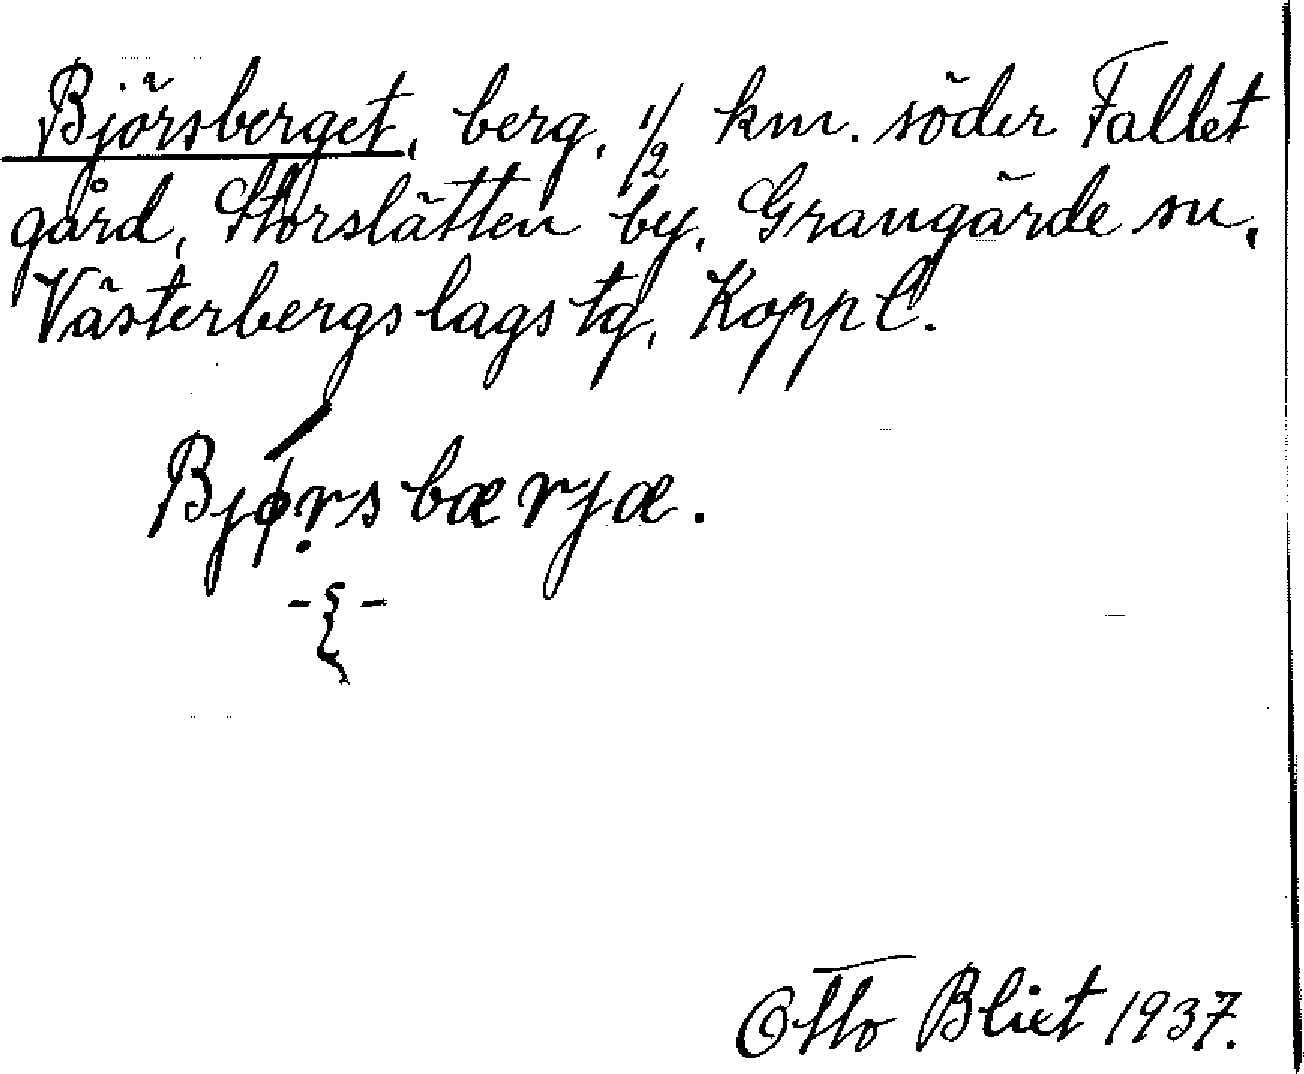 Björsberget, berg, 1/2 km. söder Fallet
gård, Storslätten by, Grangärde sn,
Västerbergslags tg, Kopp l.
Bjǿṛsbærjæ.
Otto Blixt 1937.